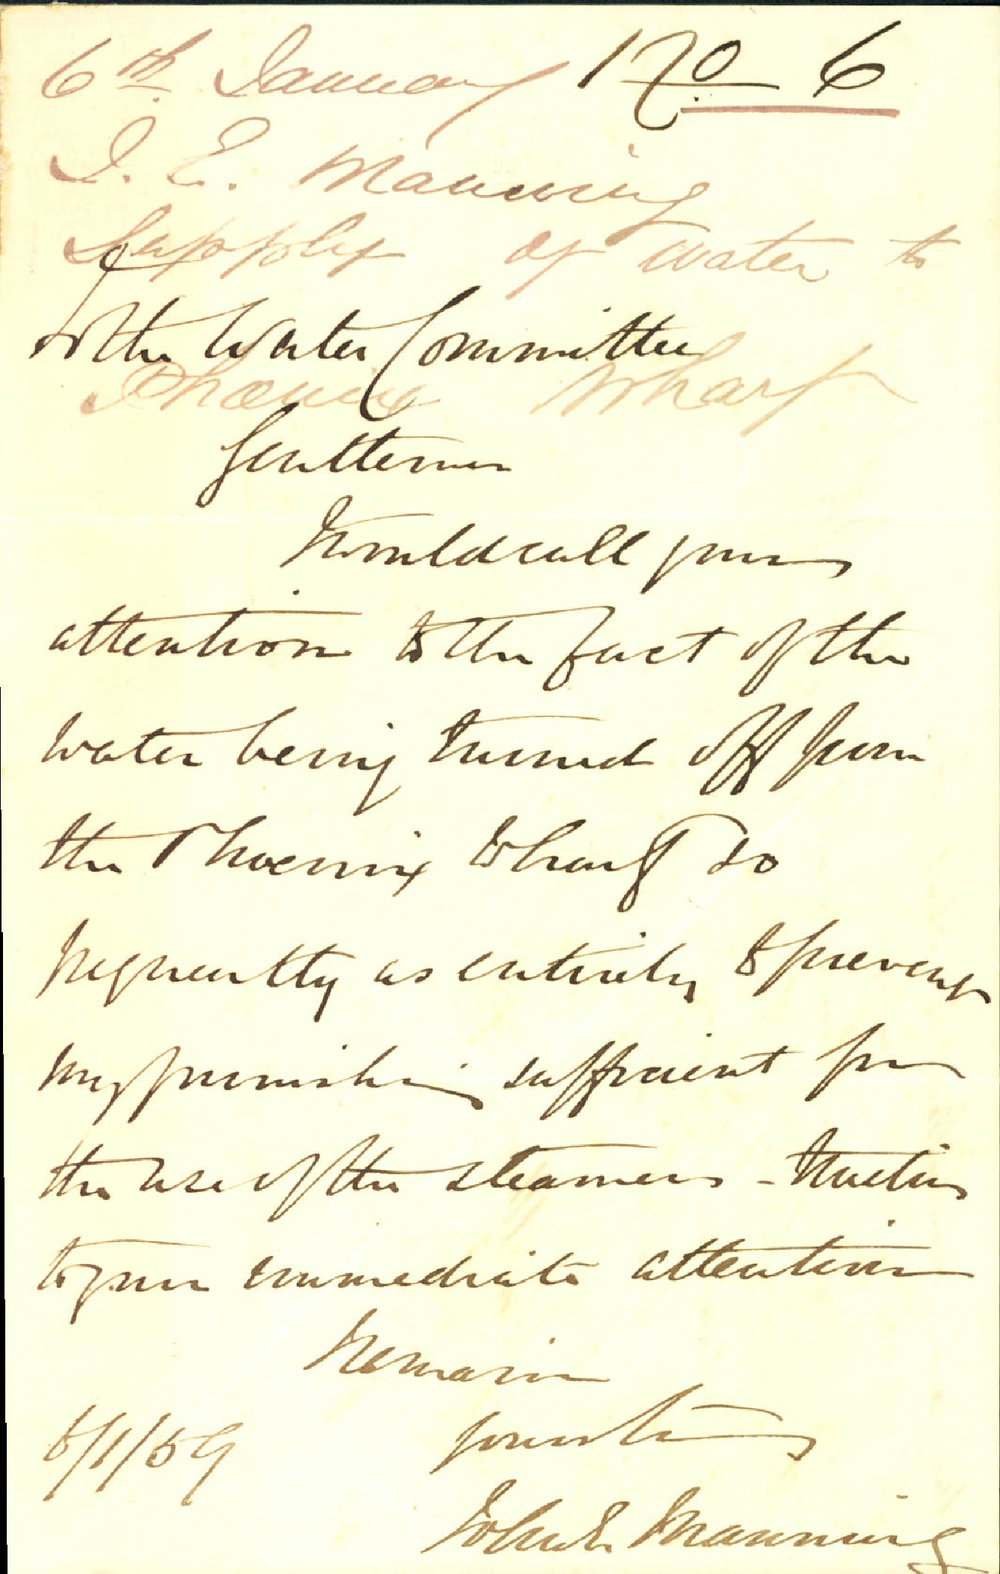 6th January No 6
J. E. Manning
Supply of water to
To the Water Committee
Phoenix Wharf
Gentlemen
I would call your
attention to the fact of the
water being turned off from
the Phoenix Wharf so
frequently as entirely to prevent
my furnishing sufficient for
the use of the steamers - Trusting
to your immediate attention
I remain
yours
6/1/59
John E Manning